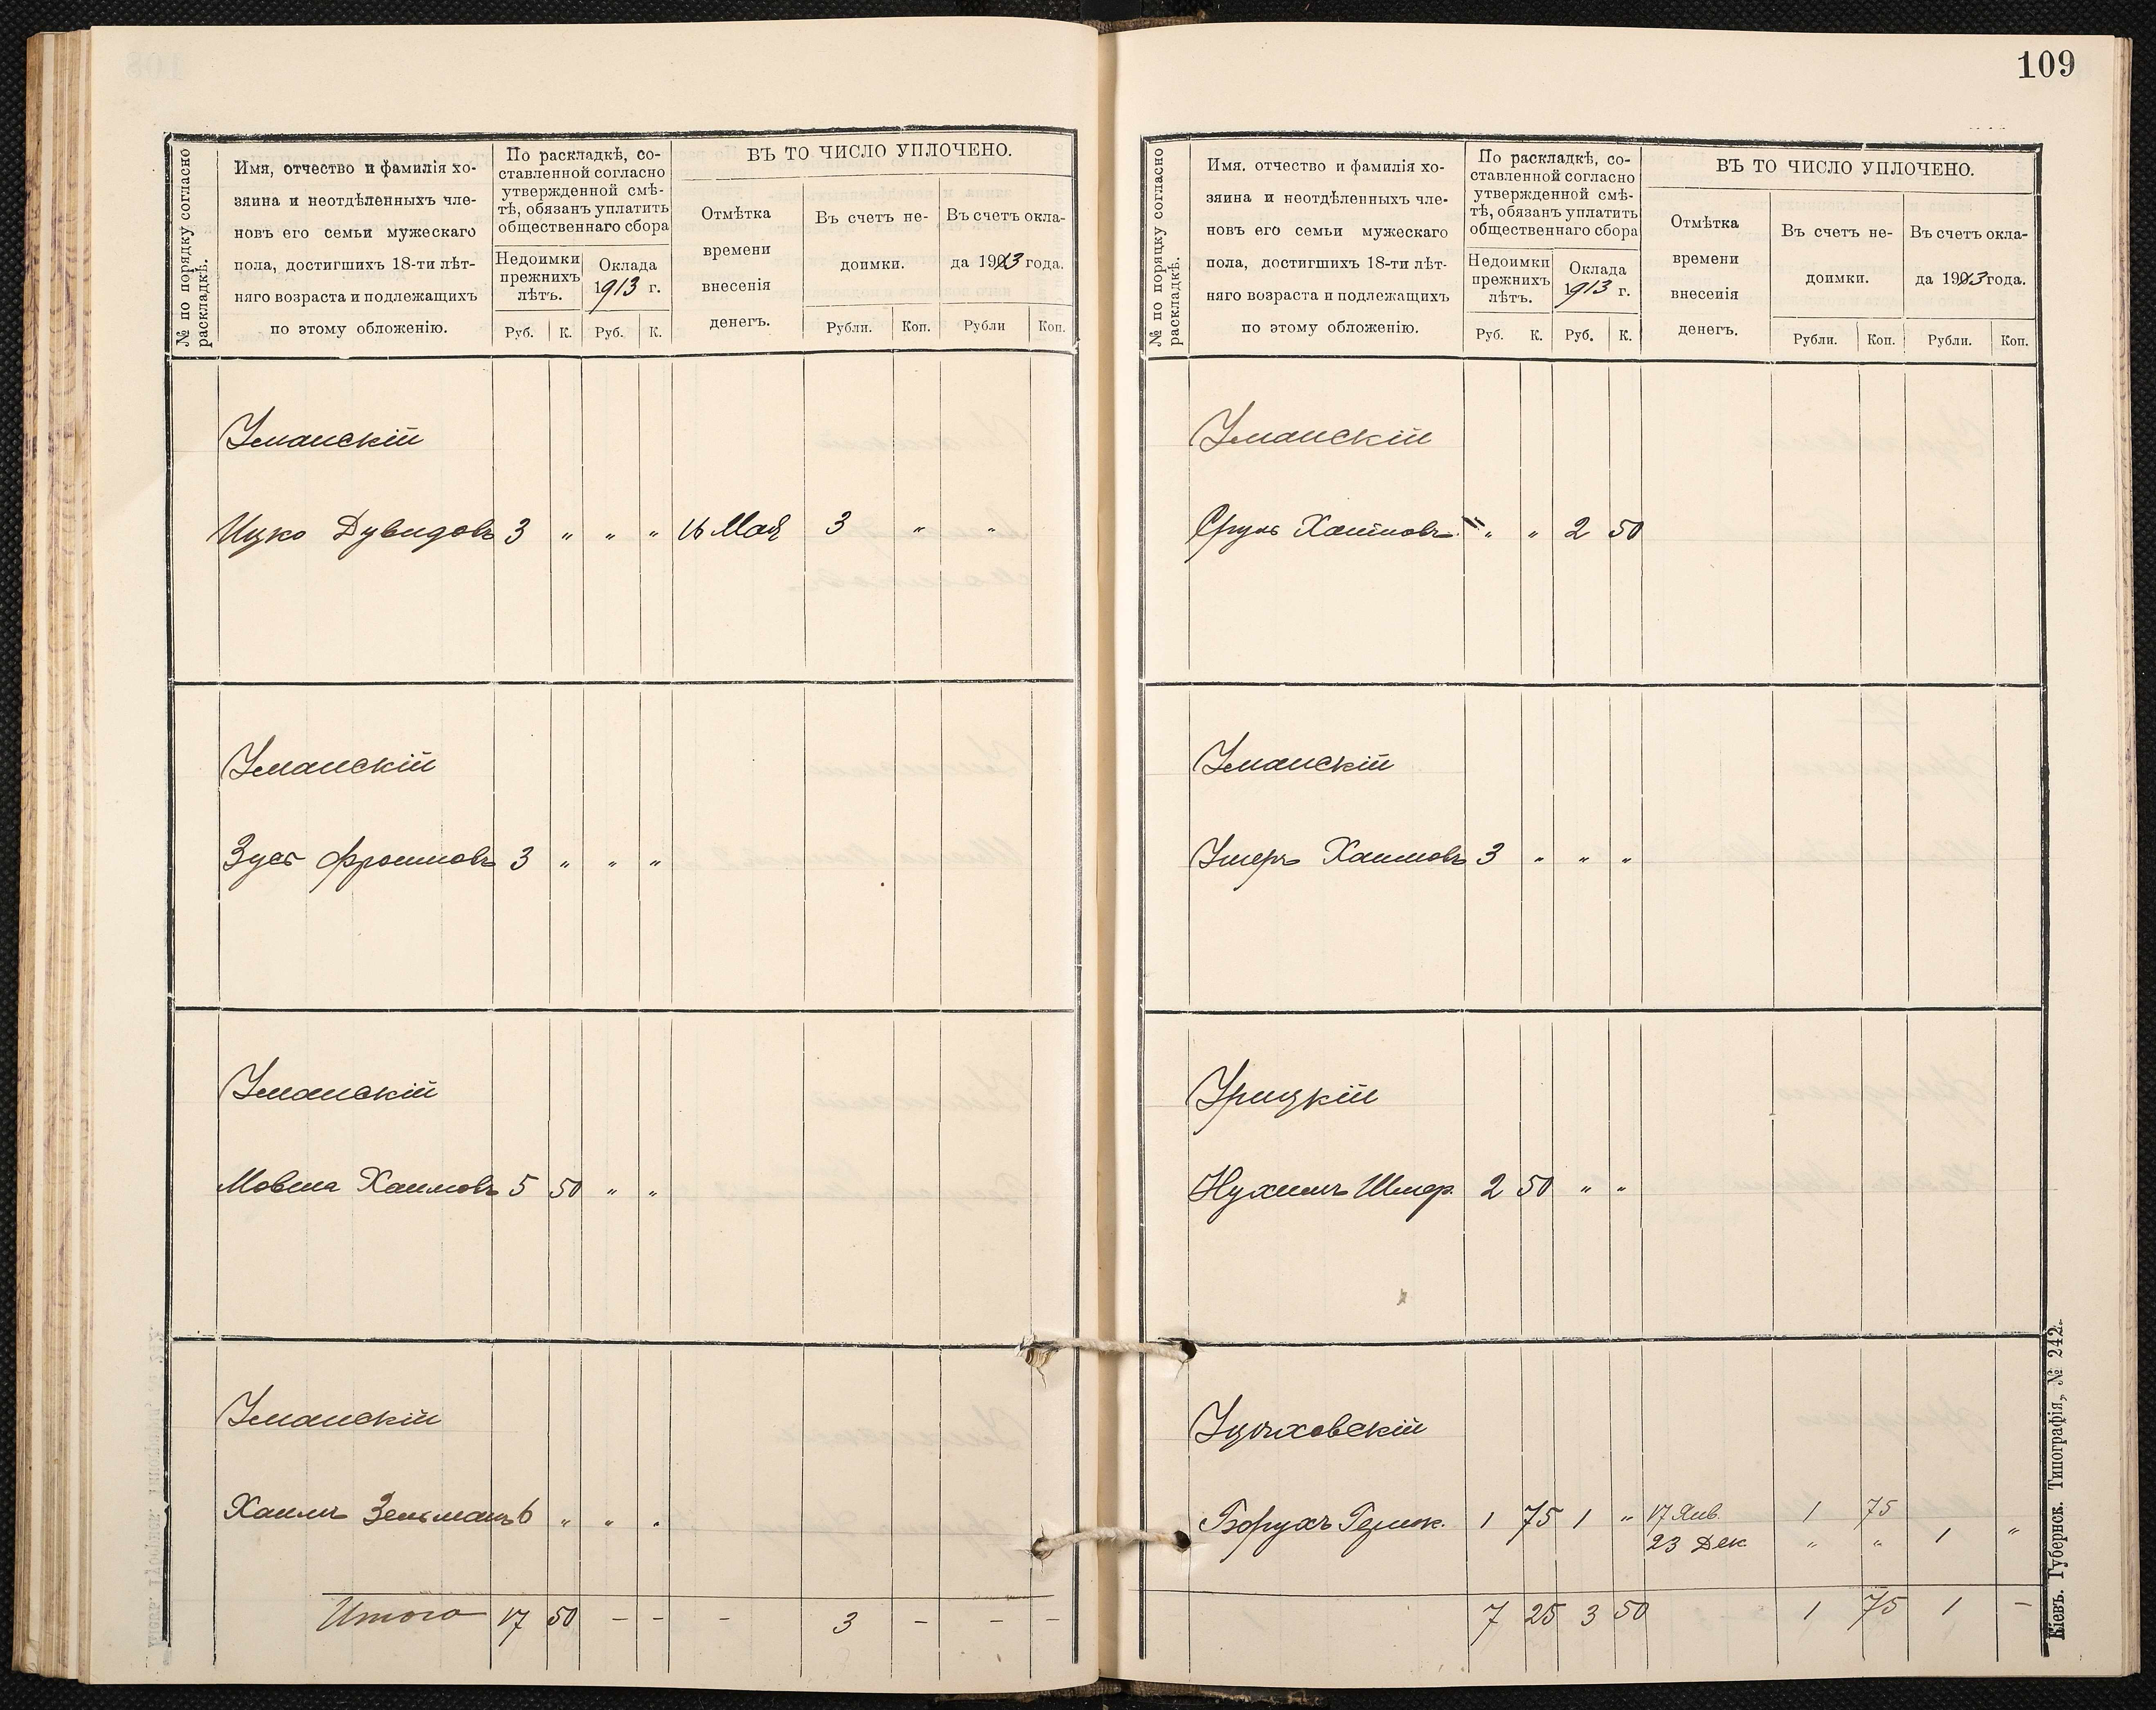 109
№ по порядку согласно
раскладкѣ.
Имя, отчество и фамилія хо-
зяина и неотдѣленныхъ чле-
новъ его семьи мужескаго
пола, достигшихъ 18-ти лѣт-
няго возраста и подлежащихъ
по этому обложенію.
По раскладкѣ, со-
ставленной согласно
утвержденной смѣ-
тѣ, обязанъ уплатить
общественнаго сбора
Недоимки
прежнихъ
лѣтъ.
Оклада
1913 г.
Руб. К. Руб. К.
ВЪ ТО ЧИСЛО УПЛОЧЕНО.
Отмѣтка
времени
внесенія
денегъ.
Въ счетъ не-
доимки.
Въ счетъ окла-
да 1913 года.
Рубли. Коп. Рубли Коп.
Уманскій
Ицко Дувидовъ 3 " " " 16 Мая 3 " "
Уманскій
Зусь Фроимовъ 3 " " "
Уманскій
Мовша Хаимовъ 5 50 " "
Уманскій
Хаимъ Зельманъ 6 " " "
Итого 17 50 — — — 3 — — —
№ по порядку согласно
раскладкѣ.
Имя. отчество и фамилія хо-
зяина и неотдѣленныхъ чле-
новъ его семьи мужескаго
пола, достигшихъ 18-ти лѣт-
няго возраста и подлежащихъ
по этому обложенію.
По раскладкѣ, со-
ставленной согласно
утвержденной смѣ-
тѣ, обязанъ уплатить
общественнаго сбора
Недоимки
прежнихъ
лѣтъ.
Оклада
1913 г.
Руб. К. Руб. К.
ВЪ ТО ЧИСЛО УПЛОЧЕНО.
Отмѣтка
времени
внесенія
денегъ.
Въ счетъ не-
доимки.
Въ счетъ окла-
да 1913 года.
Рубли. Коп. Рубли. Коп.
Уманскій
Сруль Хаимовъ " " 2 50
Уманскій
Умеръ Хаимовъ 3 " " "
Урицкій
Нухимъ Шмер. 2 50 " "
Удыховскій
Борухъ 1 75 1 " 17 Янв. 1 75
23 Дек " " 1 "
7 25 3 50 1 75 1 —
Кіевъ. Губернск. Типографія, № 242.